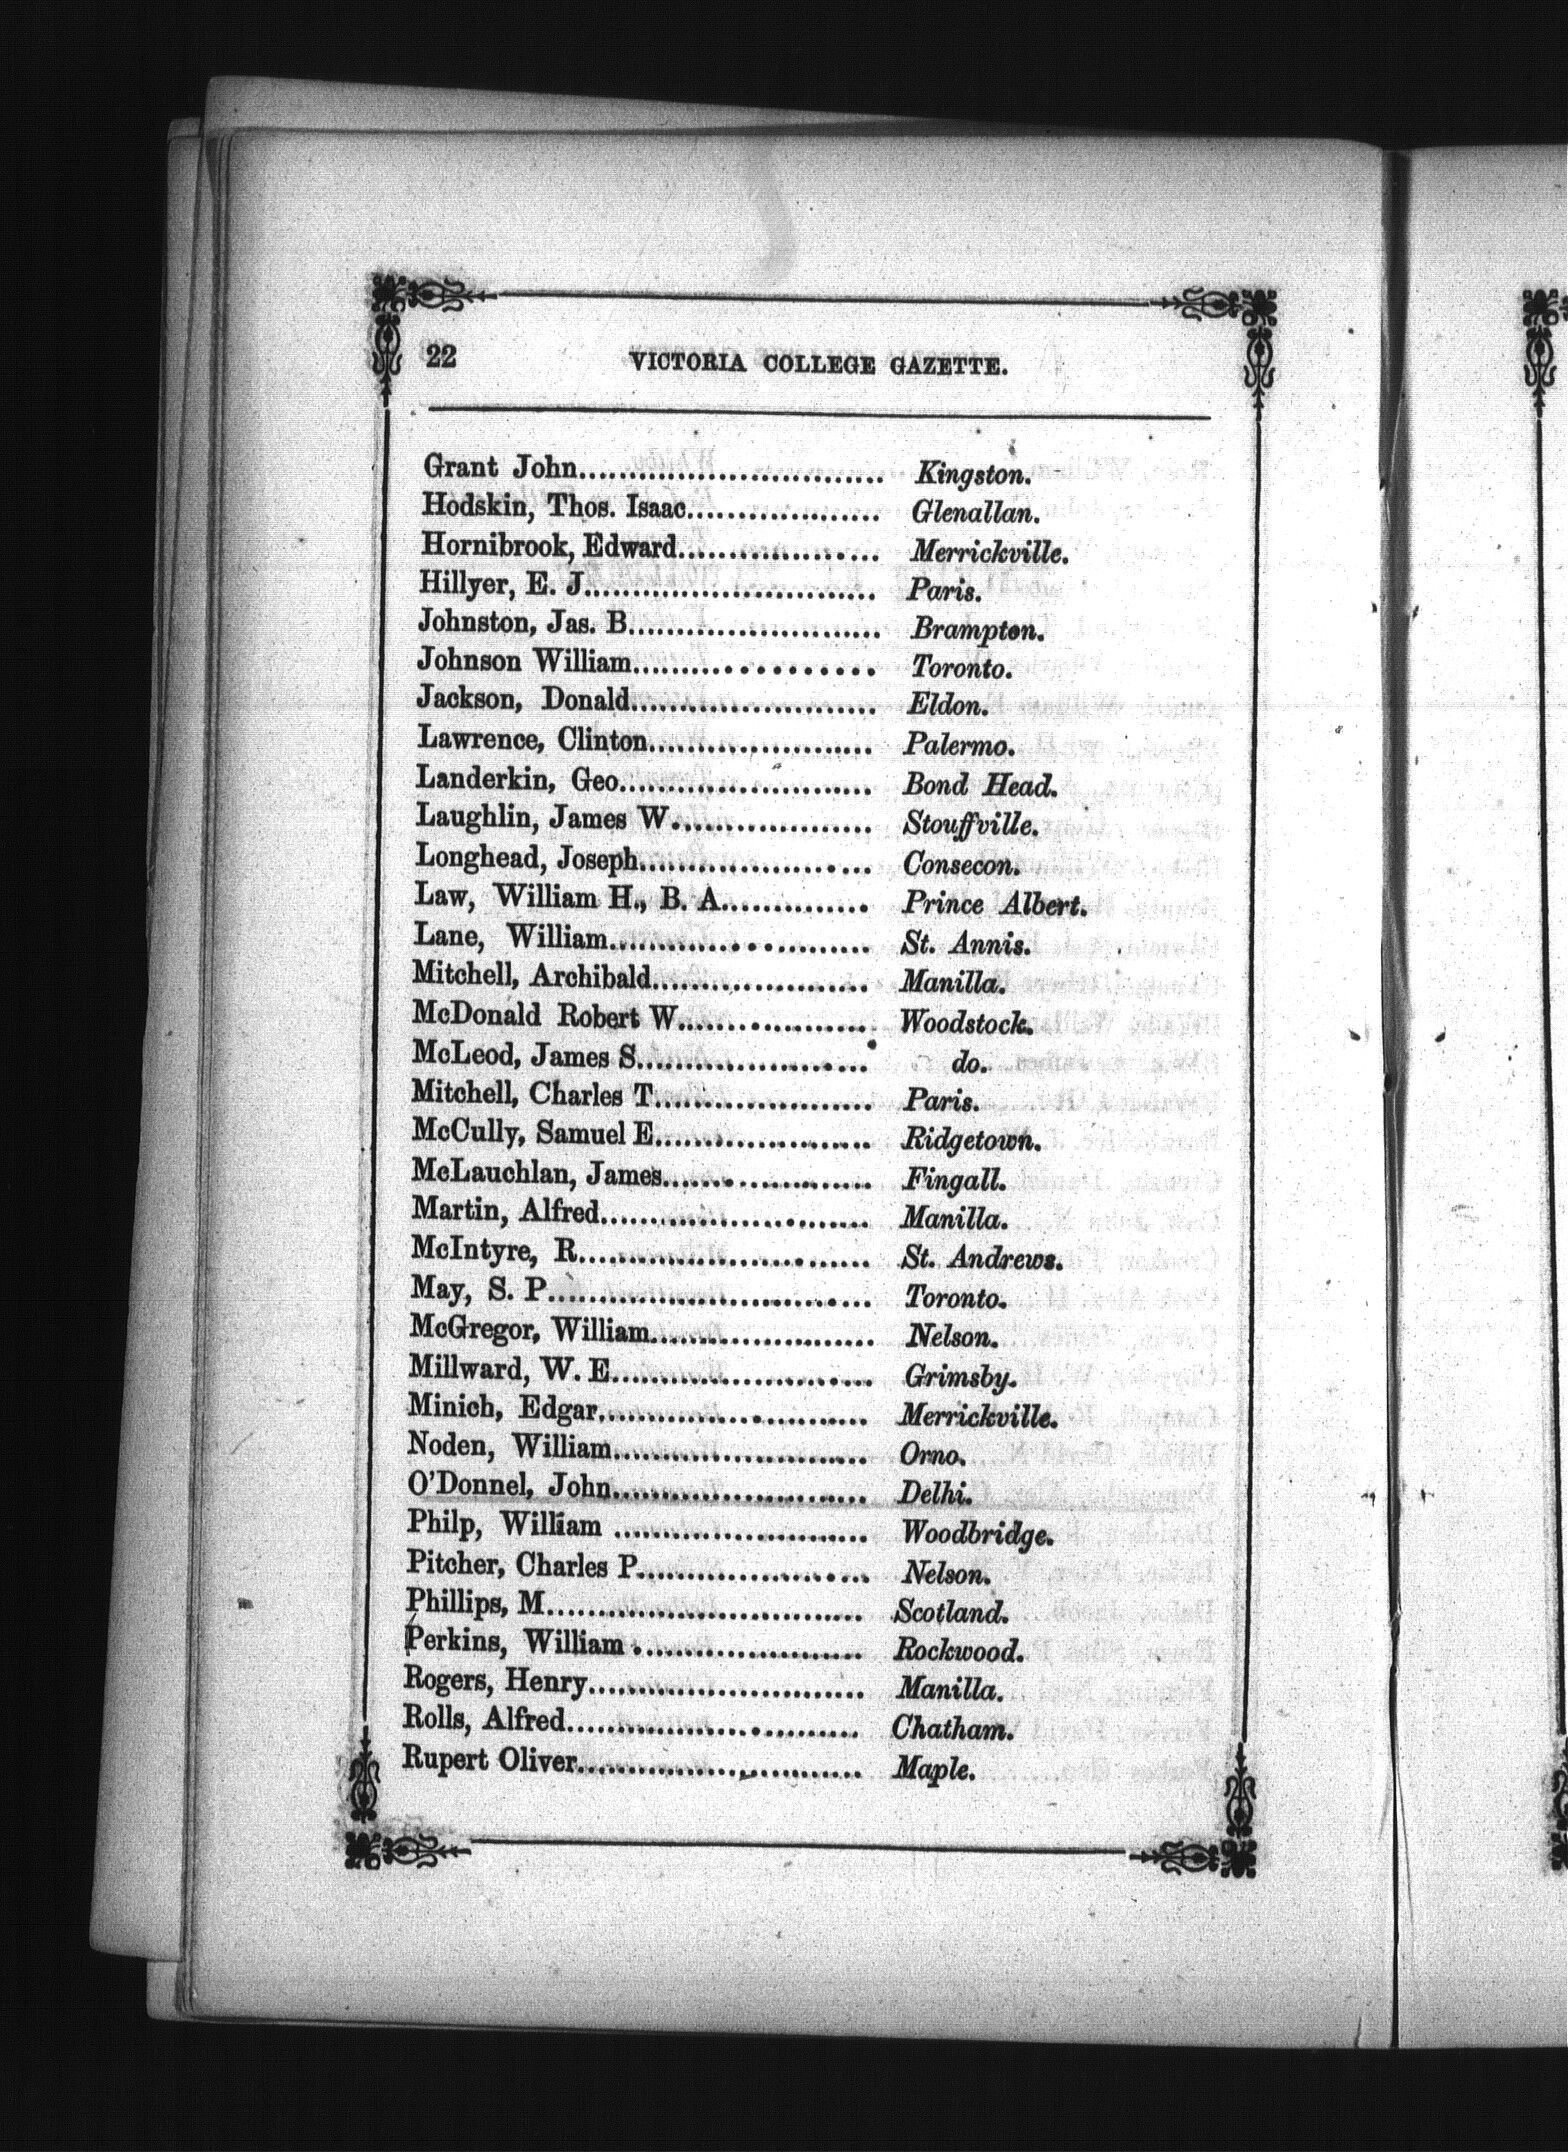 22 VICTORIA COLLEGE GAZETTE.
Grant John.............................. Kingston.
Hodskin, Thos. Isaac................... Glenallan.
Hornibrook, Edward.................... Merrickville.
Hillyer, E. J.............................. Paris.
Johnston, Jas. B.......................... Brampton.
Johnson William....................... Toronto.
Jackson, Donald........................ Eldon.
Lawrence, Clinton...................... Palermo.
Landerkin, Geo.......................... Bond Head.
Laughlin, James W.................... Stouffville.
Longhead, Joseph....................... Consecon.
Law, William H., B. A............... Prince Albert.
Lane, William.......................... St. Annis.
Mitchell, Archibald..................... Manilla.
McDonald Robert W................... Woodstock.
McLeod, James S....................... do.
Mitchell, Charles T...................... Paris.
McCully, Samuel E...................... Ridgetown.
McLauchlan, James..................... Fingall.
Martin, Alfred........................... Manilla.
McIntyre, R............................. St. Andrews.
May, S. P................................ Toronto.
McGregor, William...................... Nelson.
Millward, W. E.......................... Grimsby.
Minich, Edgar........................... Merrickville.
Noden, William.......................... Orno.
O'Donnel, John.......................... Delhi.
Philp, William .......................... Woodbridge.
Pitcher, Charles P....................... Nelson.
Phillips, M............................... Scotland.
Perkins, William ....................... Rockwood.
Rogers, Henry........................... Manilla.
Rolls, Alfred............................. Chatham.
Rupert Oliver............................ Maple.